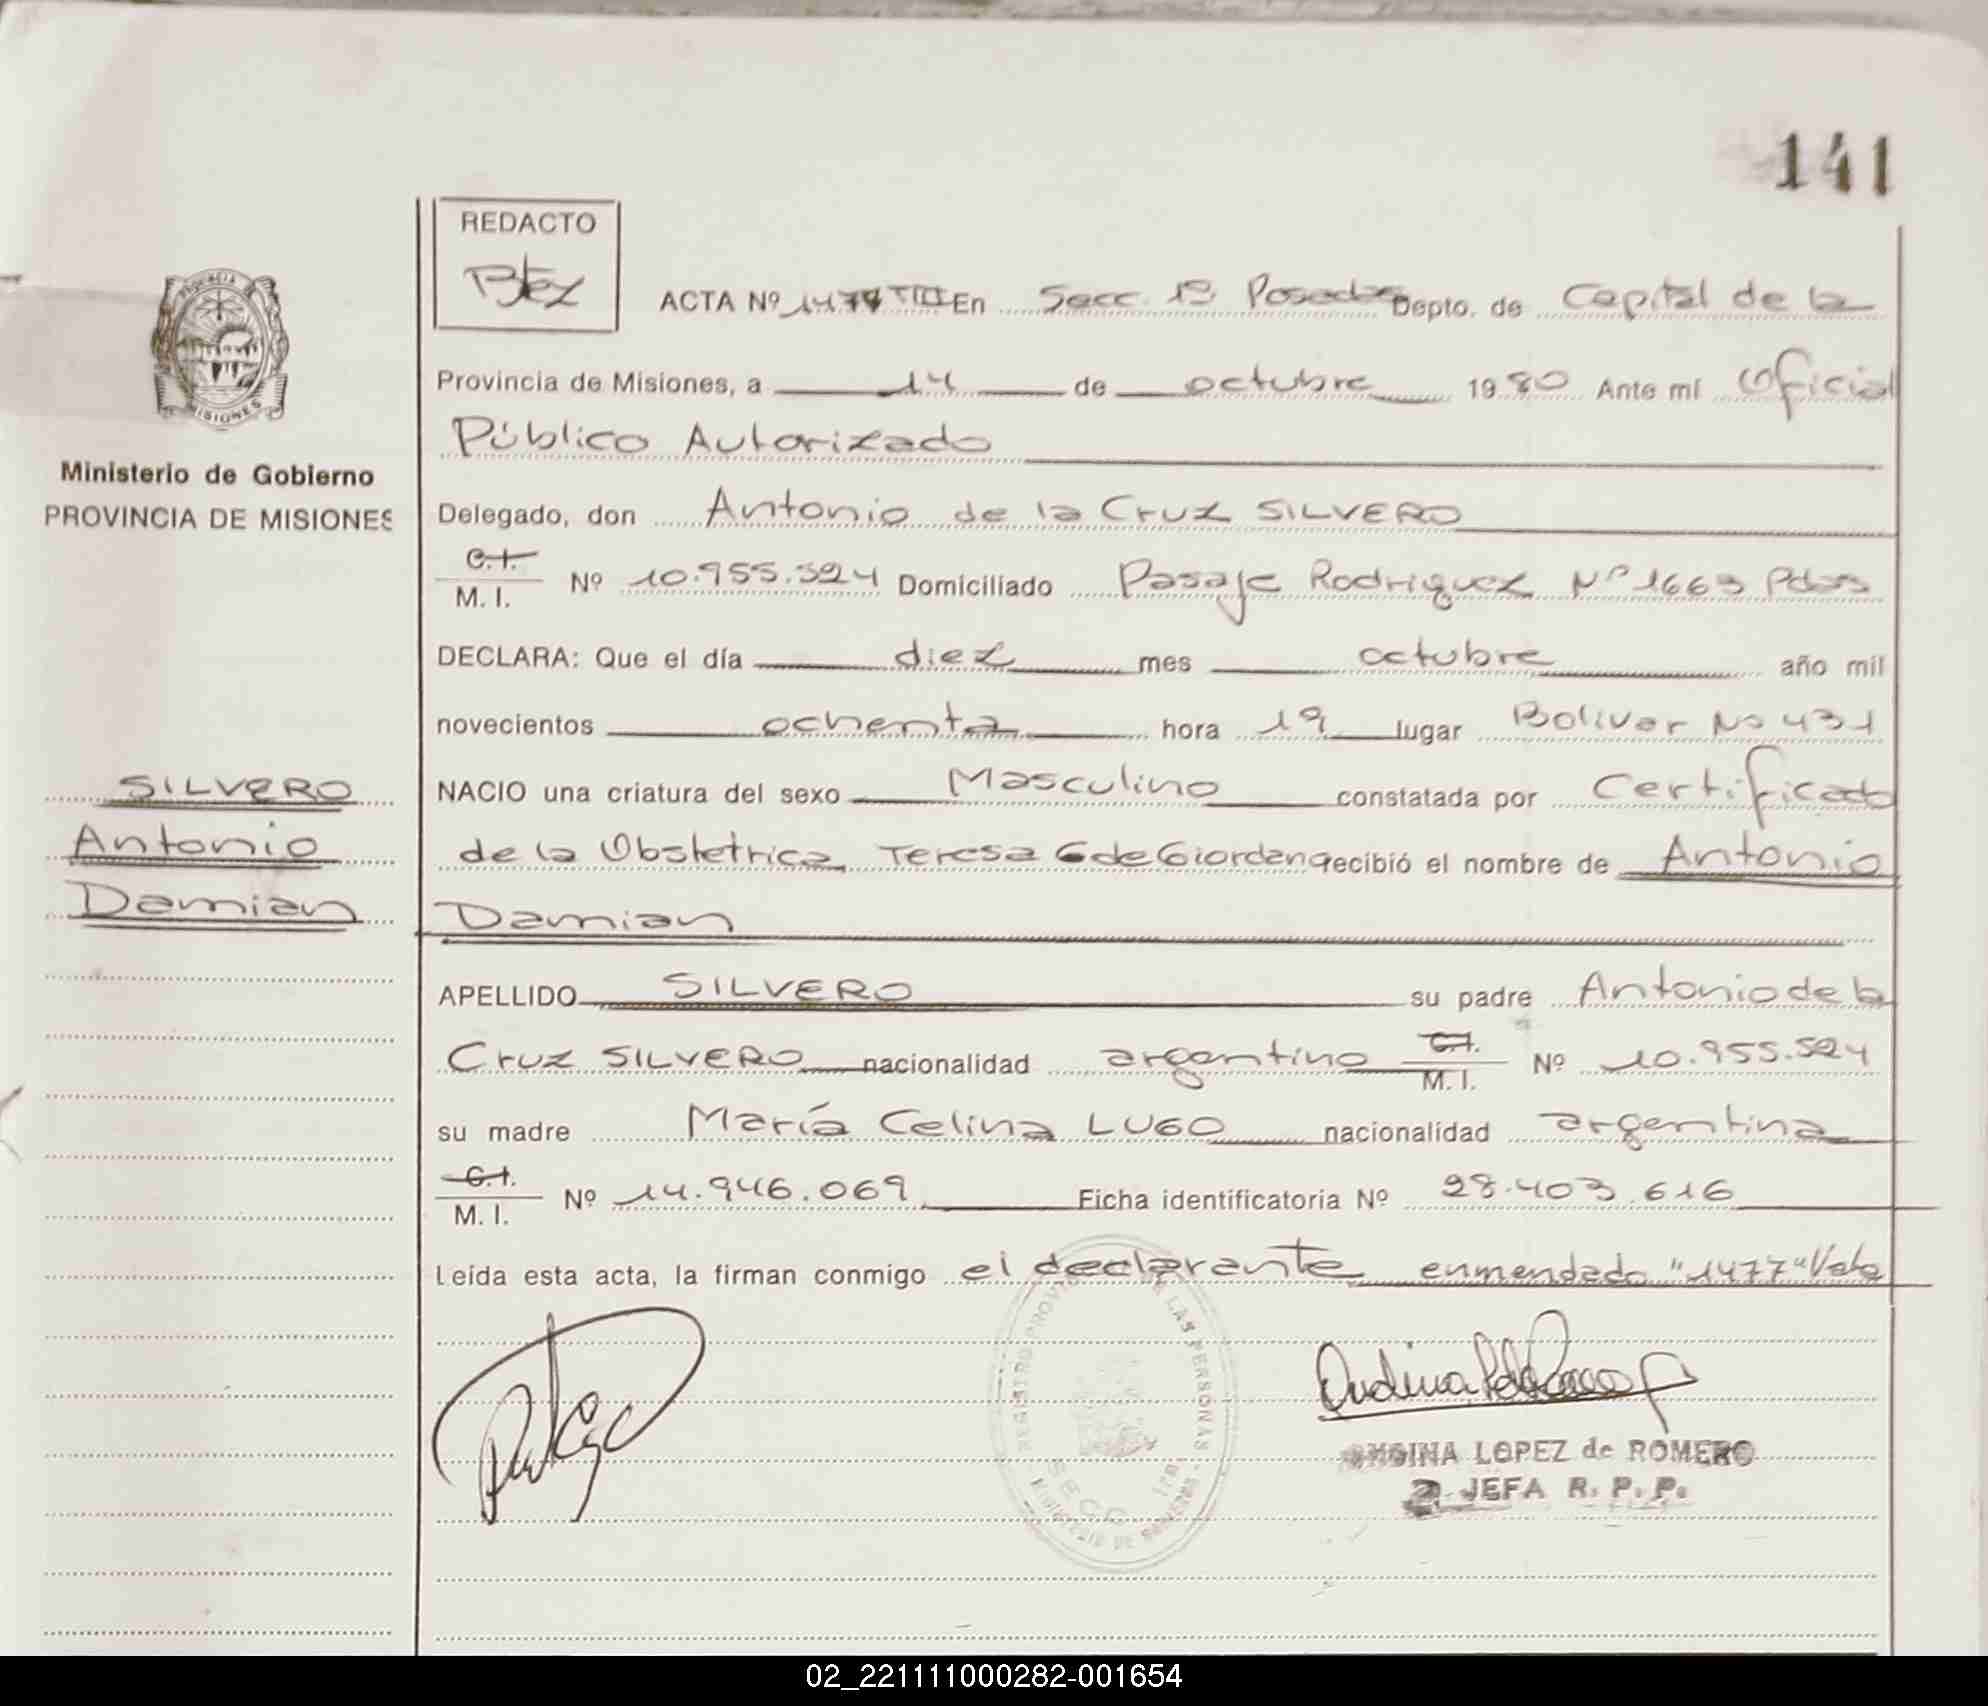 141
REDACTO
PROVINCIA
MISIONES
Ministerio de Gobierno
PROVINCIA DE MISIONES
ACTA Nº 1477 TIII En Secc. 1ª Posadas Depto. de Capital de la
Provincia de Misiones, a 14 de octubre 1980 Ante mí Oficial
Público Autorizado
Delegado, don Antonio de la Cruz SILVERO
C.I.
M. I. Nº 10.955.524 Domiciliado Pasaje Rodriguez Nº 1663 Pdas
DECLARA: Que el día diez mes octubre año mil
novecientos ochenta hora 19 lugar Bolivar No 431
SILVERO
Antonio
Damian
NACIO una criatura del sexo Masculino constatada por Certificado
de la Obstetrica Teresa G de Giordano recibió el nombre de Antonio
Damian
APELLIDO SILVERO su padre Antonio de la
Cruz SILVERO nacionalidad argentino C.I. M. I. Nº 10.955.524
su madre María Celina LUGO nacionalidad argentina
C.I.
M. I. Nº 14.946.069 Ficha identificatoria Nº 28.403.616
Leída esta acta, la firman conmigo el declarante enmendado "1477" Vale
LOPEZ de ROMERO
JEFA R. P. P.
02_221111000282-001654